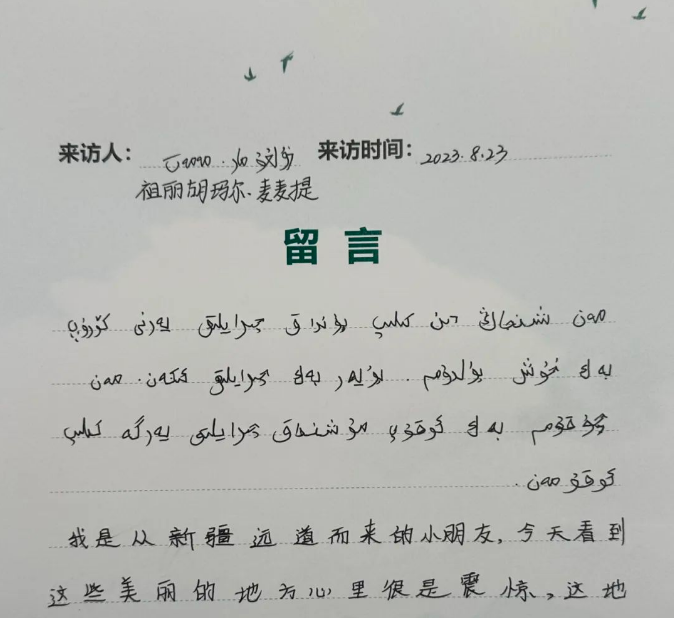 来访人: 来访时间: 2023.8.23
祖丽胡玛尔·麦麦提
留言
مەن شىنجاڭ دىن كىلىپ بۇنداق چىرايلىق يەرنى كۆرۈپ
بەك خۇش بولدۇم. بۇيەر بەك چىرايلىق ئىكەن. مەن
بەك ئوقۇپ مۇشنداق چىرايلىق يەرگە كىلىپ
ئوقۇ مەن.
我是从新疆远道而来的小朋友,今天看到
这些美丽的地方心里很是震惊,这地